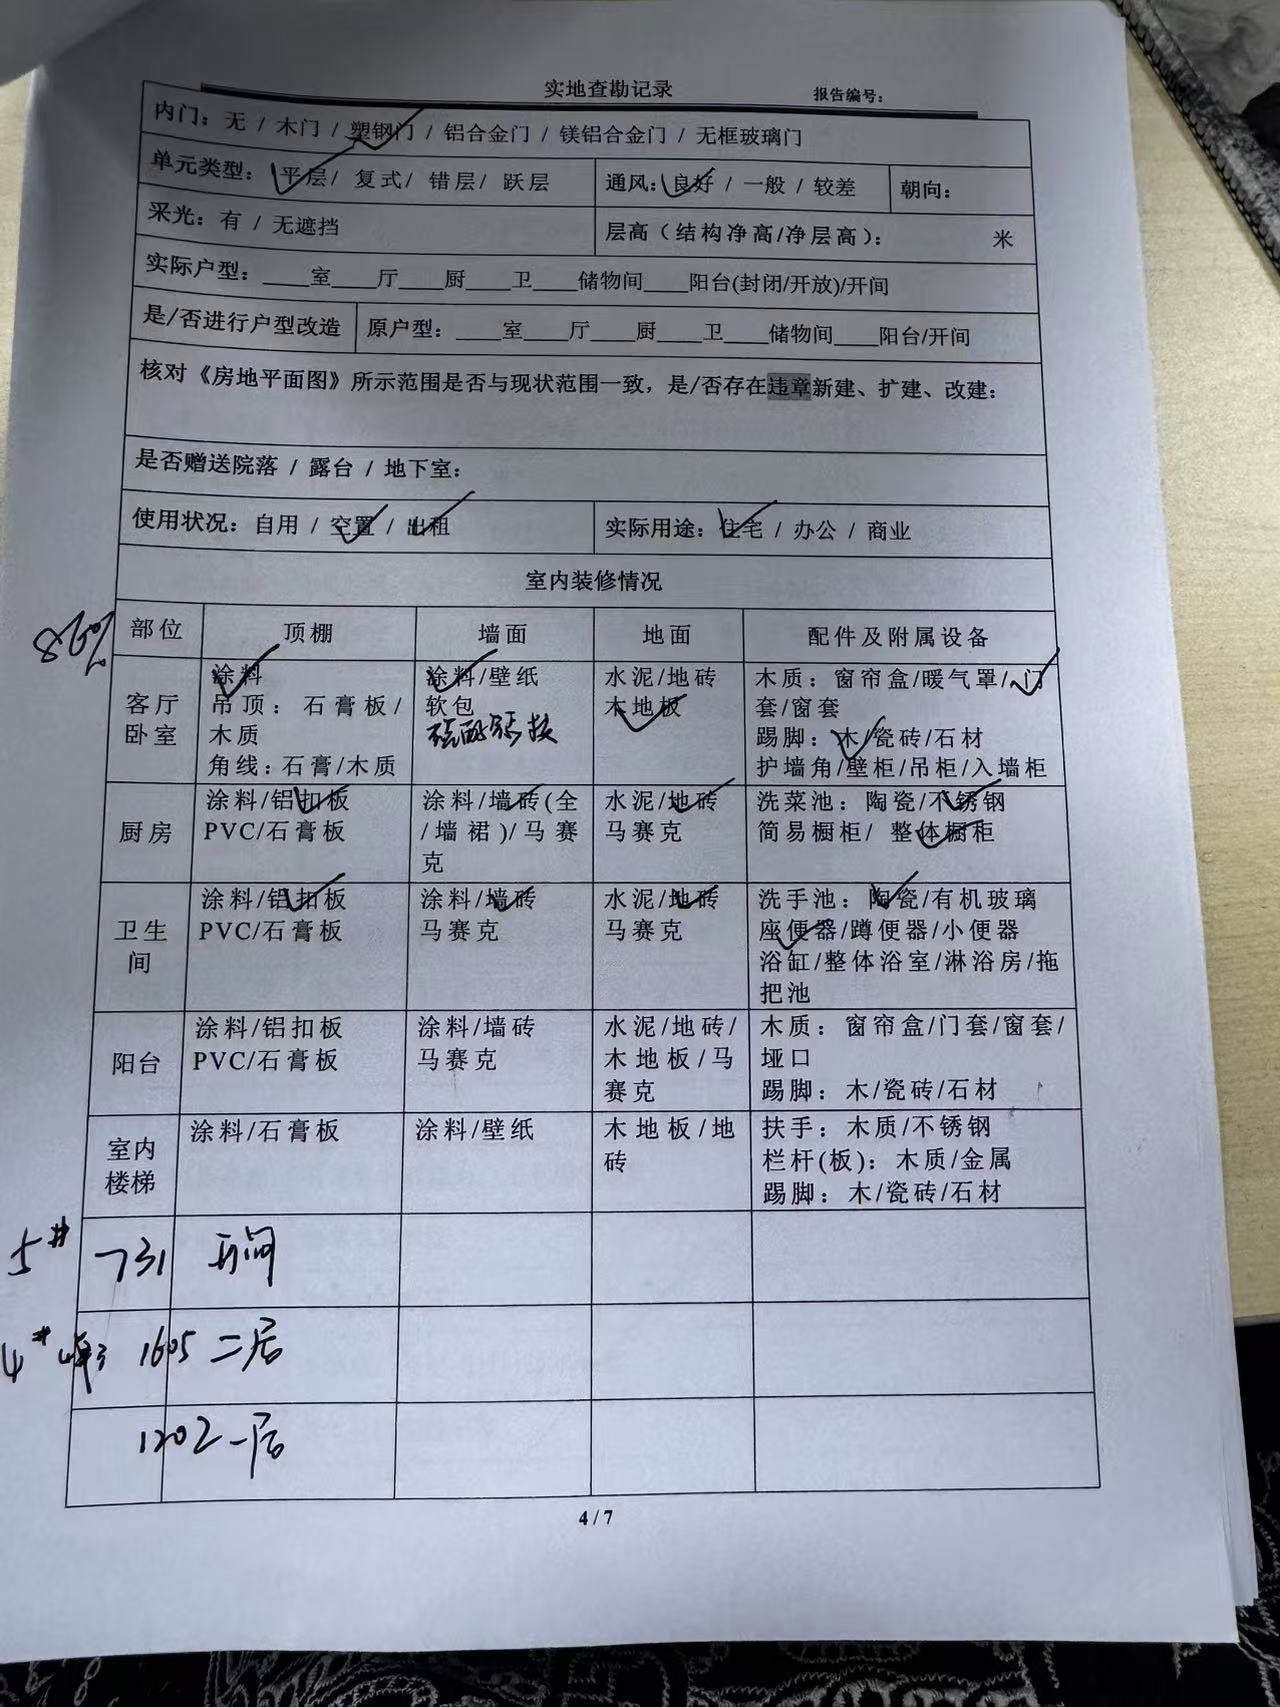 实地查勘记录 报告编号：
内门：无 / 木门 / 塑钢门 / 铝合金门 / 镁铝合金门 / 无框玻璃门
单元类型：平层/ 复式/ 错层/ 跃层 通风：良好 / 一般 / 较差 朝向：
采光：有 / 无遮挡 层高（结构净高/净层高）： 米
实际户型：____室____厅____厨____卫____储物间____阳台(封闭/开放)/开间
是/否进行户型改造 原户型：____室____厅____厨____卫____储物间____阳台/开间
核对《房地平面图》所示范围是否与现状范围一致，是/否存在违章新建、扩建、改建：
是否赠送院落 / 露台 / 地下室：
使用状况：自用 / 空置 / 出租 实际用途：住宅 / 办公 / 商业
室内装修情况
部位 顶棚 墙面 地面 配件及附属设备
客厅
卧室
涂料
吊顶：石膏板/
木质
角线：石膏/木质
涂料/壁纸
软包
水泥/地砖
木地板
木质：窗帘盒/暖气罩/门
套/窗套
踢脚：木/瓷砖/石材
护墙角/壁柜/吊柜/入墙柜
厨房
涂料/铝扣板
PVC/石膏板
涂料/墙砖(全
/墙裙)/马赛
克
水泥/地砖
马赛克
洗菜池：陶瓷/不锈钢
简易橱柜/ 整体橱柜
卫生
间
涂料/铝扣板
PVC/石膏板
涂料/墙砖
马赛克
水泥/地砖
马赛克
洗手池：陶瓷/有机玻璃
座便器/蹲便器/小便器
浴缸/整体浴室/淋浴房/拖
把池
阳台
涂料/铝扣板
PVC/石膏板
涂料/墙砖
马赛克
水泥/地砖/
木地板/马
赛克
木质：窗帘盒/门套/窗套/
垭口
踢脚：木/瓷砖/石材
室内
楼梯
涂料/石膏板
涂料/壁纸
木地板/地
砖
扶手：木质/不锈钢
栏杆(板)：木质/金属
踢脚：木/瓷砖/石材
5# 731 开间
4# 1605 二居
1202 一居
4 / 7